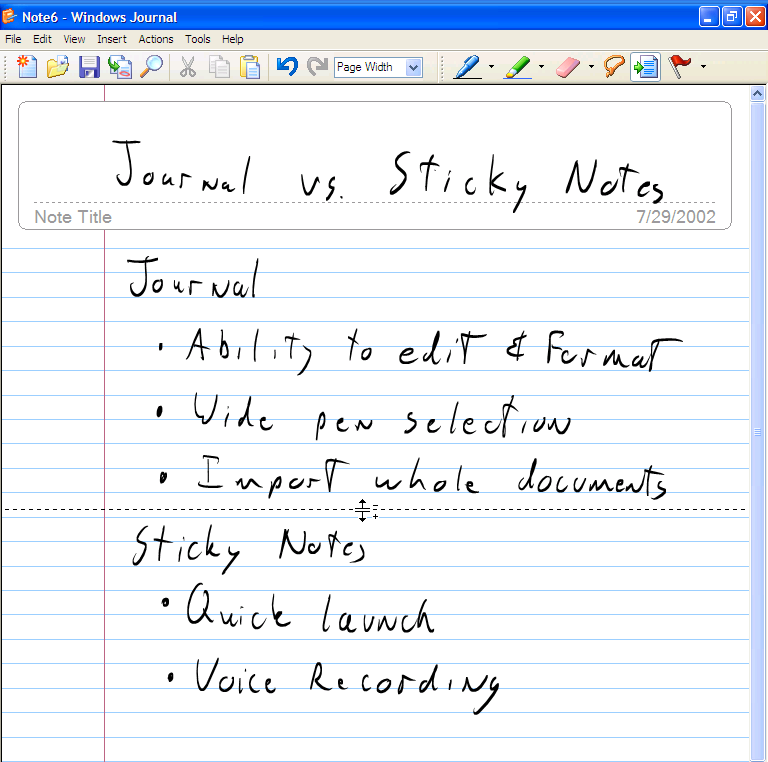 Note6 - Windows Journal
File Edit View Insert Actions Tools Help
Page Width
Journal vs. Sticky Notes
Note Title 7/29/2002
Journal
• Ability to edit & Format
• Wide pen selection
• Import whole documents
Sticky Notes
• Quick launch
• Voice Recording